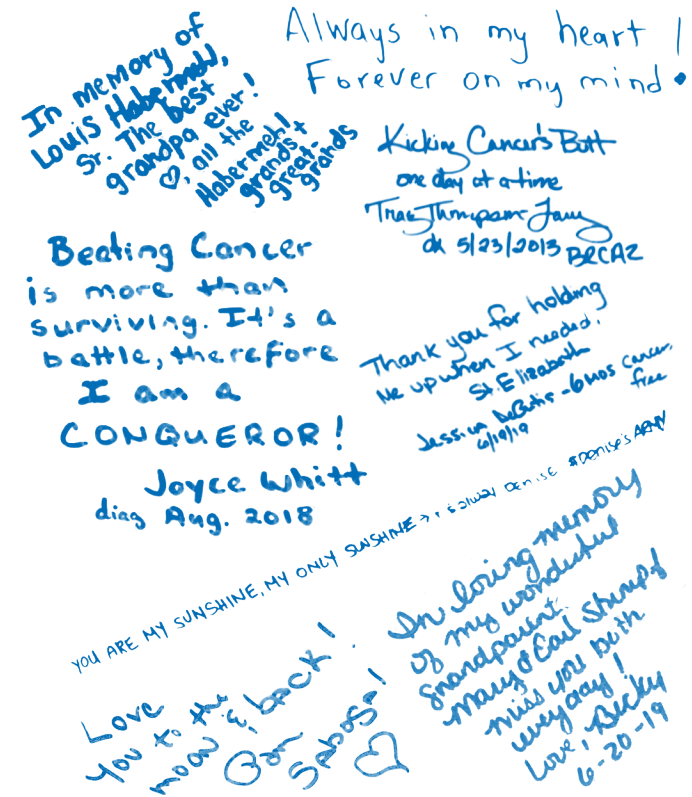 In memory of
Louis Habermehl,
Sr. The best
grandpa ever!
♡, all the
Habermehl
grands +
great-
grands
Always in my heart !
Forever on my mind.
Kicking Cancer's Butt
one day at a time
Thompson
dx 5/23/2013 BRCA2
Beating Cancer
is more than
surviving. It's a
battle, therefore
I am a
CONQUEROR!
Joyce Whitt
diag Aug. 2018
Thank you for holding
me up when I needed.
St. Elizabeth
Jessica - 6 mos cancer
free
6/19/19
YOU ARE MY SUNSHINE, MY ONLY SUNSHINE → DENISE #DENISE'S ARMY
Love
you to the
moon & back!
Pam
Sabosa!
♡
In loving memory
of my wonderful
grandparent.
Mary & Earl Stumpf
miss you both
every day!
Love, Becky
6-20-19